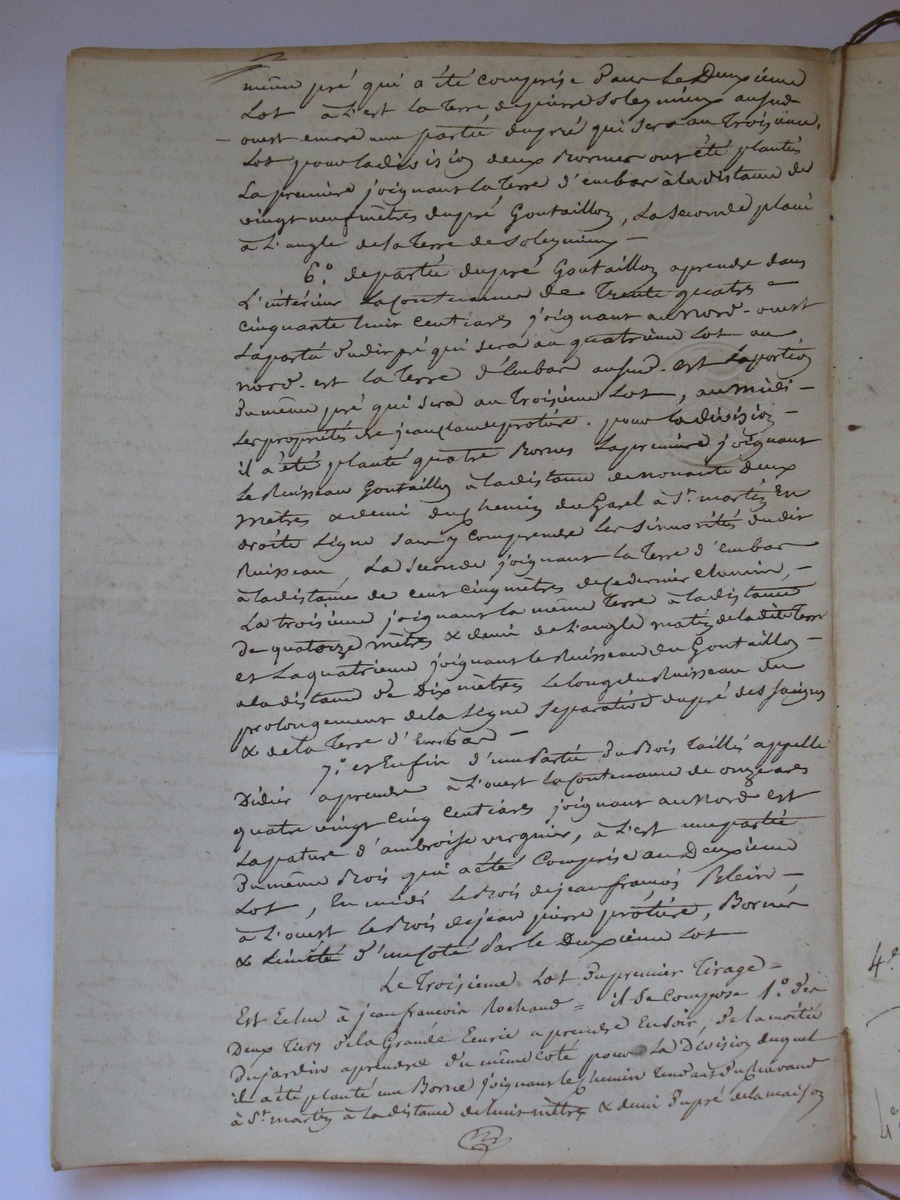 même pré qui a été comprise dans Le Deuxième
Lot à L'est la terre de pierre Soleymieux au sud
ouest encore une partie du pré qui sera au Troisième
Lot pour la division deux Bornes ont été plantés
La première joignant la terre d'embar à la distance de
vingt neuf mètres du pré Goutaillon, La seconde placé
à L'angle de la terre de Soleymieux —
6.° de partie du pré Goutaillon aprendre dans
L'intérieur La Contenance de Trente quatre
cinquante huit centiares joignant au Nord-ouest
La partie dudit pré qui sera au quatrième Lot au
nord-est la terre d'Embar au sud-est La portion
du même pré qui sera au Troisième Lot, au midi —
Les propriétés de jean Claude protière. pour la division —
il a été planté quatre Bornes La première joignant
Le Ruisseau Goutaillon à la distance de nonante deux
mètres & demi du chemin du Garel à St. martin En
droite Ligne sans y comprendre Les sinuosités dudit
Ruisseau La Seconde joignant la Terre d'embar
à la distance de cent cinq mètres de ce dernier chemin, —
La troisième joignant la même Terre à la distance
De quatorze mètres & demi de L'angle matin de la dite Terre
et La quatrième joignant le Ruisseau du Goutaillon —
a la distance de Dix mètres Le long du Ruisseau du
prolongement de la Ligne Séparative du pré des
& de la Terre d'Embar —
7.° et Enfin d'une Partie du Bois Taillis appellé
Didier aprendre à L'ouest la Contenance de onze ares
quatre vingt Cinq Centiares joignant au Nord est
La pature d'ambroise vergnier, à L'est une partie
du même Bois qui a été Comprise au Deuxième
Lot, En midi le Bois de jean francois Blein —
à L'ouest le Bois de jean pierre protière, Borné
& Limité d'un Coté Par le Deuxième Lot
Le Troisième Lot du premier Tirage —
Est Echue à jean francois Rochand = il Se Compose 1.° des
Deux Tiers de la Grande Ecurie aprendre En soir, de la moitié
Du jardin aprendre du même Coté pour La Division duquel
il a été planté une Borne joignant le chemin Tendant du
à St. martin à La distance de huit mètres & demi du pré de la maison
4.e
4e